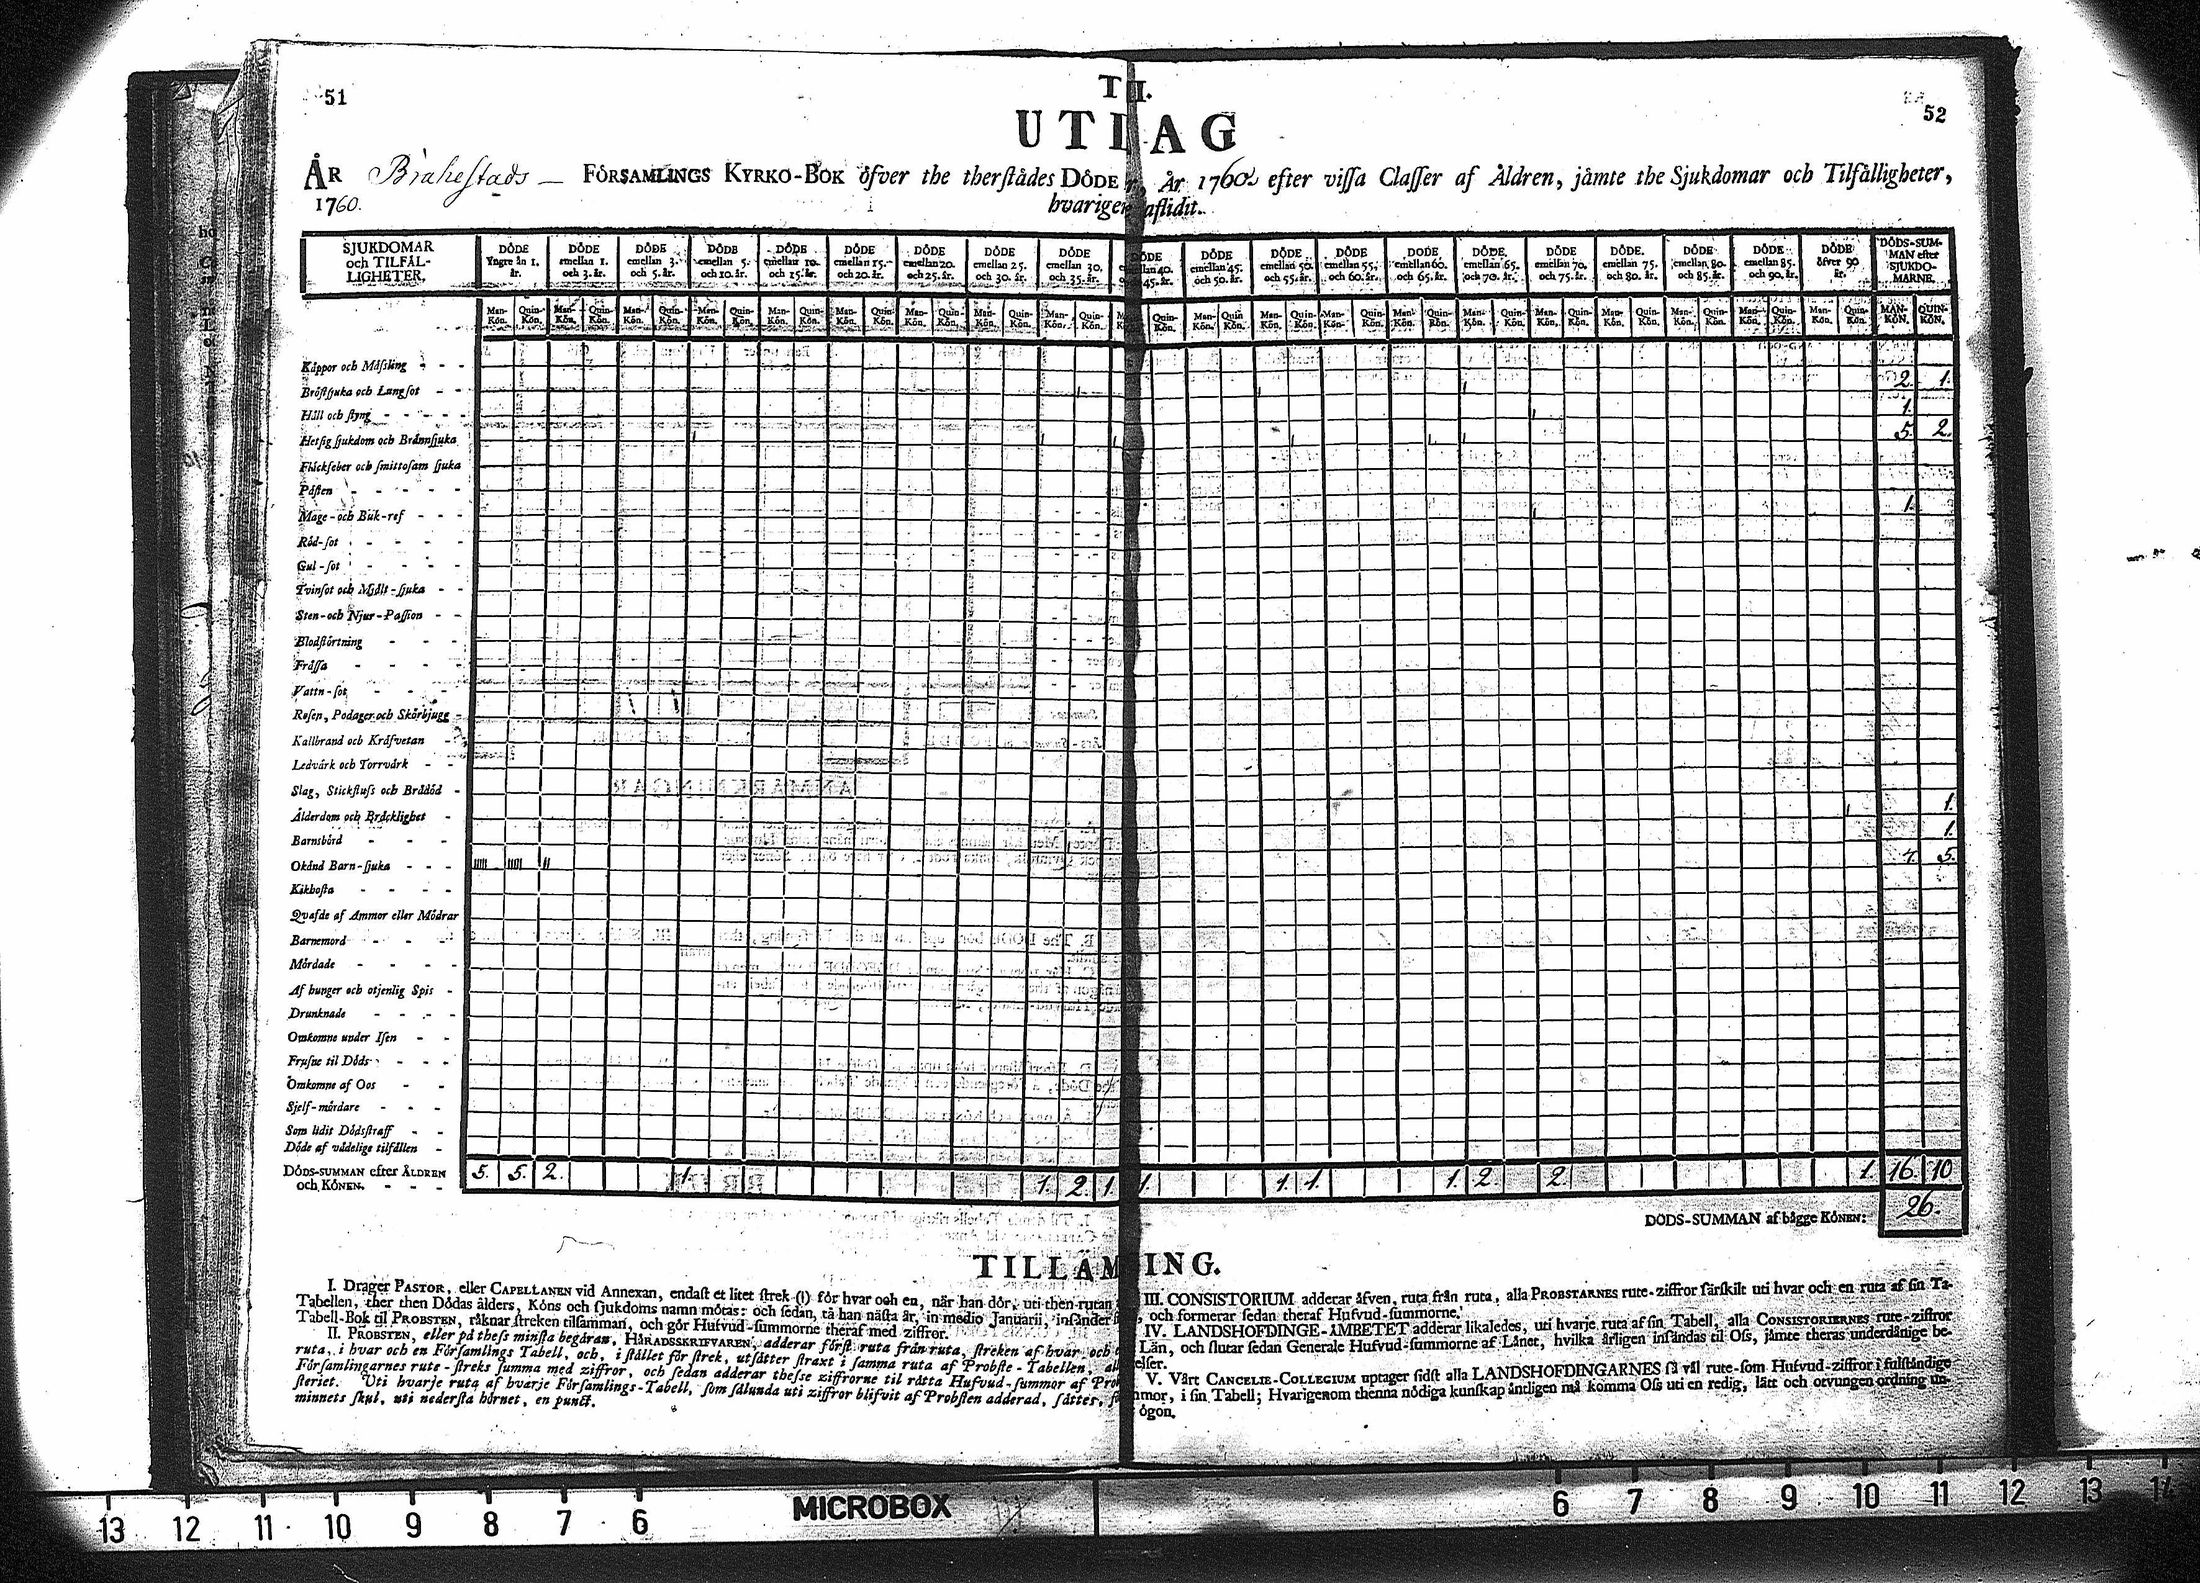 51
52
T II.
UTLAG
ÅR Brahestads — FÖRSAMLINGS KYRKO-BOK öfver the therstädes DÖDE r, År 1760 efter vissa Classer af Åldren, jämte the Sjukdomar och Tilfälligheter,
1760.
hvarigen aflidit.
SJUKDOMAR och TILFÄLLIGHETER.
DÖDE Yngre än 1. år.
DÖDE emellan 1. och 3. år.
DÖDE emellan 3. och 5. år.
DÖDE emellan 5. och 10. år.
DÖDE emellan 10. och 15. år.
DÖDE emellan 15. och 20. år.
DÖDE emellan 20. och 25. år.
DÖDE emellan 25. och 30. år.
DÖDE emellan 30. 35. år.
DÖDE 40. 45. år.
DÖDE emellan 45. och 50. år.
DÖDE emellan 50. och 55. år.
DÖDE emellan 55. och 60. år.
DÖDE emellan 60. och 65. år.
DÖDE. emellan 65. och 70. år.
DÖDE emellan 70. och 75. år.
DÖDE. emellan 75. och 80. år.
DÖDE emellan 80. och 85. år.
DÖDE emellan 85. och 90. år.
DÖDE öfver 90 år.
DÖDS-SUMMAN efter SJUKDOMARNE.
Man-Kön. Quin-Kön.
MAN-KÖN. QUIN-KÖN.
Kåppor och Måssling - - -
Bröstsjuka och Lungsot - - 2. 1.
Håll och styng - - - - - 1.
Hetsig sjukdom och Brännsjuka 5. 2.
Fläckfeber och smittosam sjuka
Pästen - - - - -
Mage- och Buk-ref - - - 1.
Röd-sot - - - - -
Gul-sot - - - -
Tvinsot och Mjält-sjuka - -
Sten- och Njur-Passion - -
Blodstörtning - - -
Frässa - - - -
Vattn-sot - - - -
Rosen, Podager och Skörbjugg -
Kallbrand och Kräfvetan -
Ledvärk och Torrvärk - -
Slag, Stickfluss och Brådöd -
Ålderdom och Bräcklighet - 1.
Barnsbörd - - - - 1.
Okänd Barn-sjuka - - - IIIII IIIII II 7. 5.
Kikhosta - - - -
Qvafde af Ammor eller Mödrar
Barnemord - - - -
Mördade - - - -
Af hunger och otjenlig Spis -
Drunknade - - - -
Omkomne under Isen - -
Frusne til Döds - - -
Omkomne af Oos - -
Sjelf-mördare - - -
Som lidit Dödsstraff - -
Döde af vådelige tilfällen -
DÖDS-SUMMAN efter ÅLDREN och KÖNEN. - - - 5. 5. 2. 1. 1. 2. 1. 1. 1. 1. 1. 2 2. 1. 16. 10
DÖDS-SUMMAN af bägge KÖNEN: 26.
TILLÄM ING.
I. Drager PASTOR, eller CAPELLANEN vid Annexan, endast et litet strek (I) för hvar och en, när han dör, uti then rutan
Tabellen, ther then Dödas ålders, Köns och sjukdoms namn mötas: och sedan, tå han nästa år, in medio Januarii, insänder
Tabell-Bok til PROBSTEN, räknar streken tilsamman, och gör Hufvud-summorne theraf med ziffror.
II. PROBSTEN, eller på thess minsta begäran, HÄRADSSKRIFVAREN, adderar först ruta från ruta, streken af hvar och
ruta, i hvar och en Församlings Tabell, och, i stället för strek, utsätter straxt i samma ruta af Probste-Tabellen,
Församlingarnes rute-streks summa med ziffror, och sedan adderar thesse ziffrorne til rätta Hufvud-summor af
steriet. Uti hvarje ruta af hvarje Församlings-Tabell, som sålunda uti ziffror blifvit af Probsten adderad, sättes,
minnets skul, uti nedersta hörnet, en punct.
III. CONSISTORIUM adderar äfven, ruta från ruta, alla PROBSTARNES rute-ziffror särskilt uti hvar och en ruta af sin Ta-
, och formerar sedan theraf Hufvud-summorne.
IV. LANDSHOFDINGE-ÄMBETET adderar likaledes, uti hvarje ruta af sin Tabell, alla CONSISTORIERNES rute-ziffror
Län, och slutar sedan Generale Hufvud-summorne af Länet, hvilka årligen insändas til Oss, jämte theras underdånige be-
elser.
V. Vårt CANCELIE-COLLEGIUM uptager sidst alla LANDSHOFDINGARNES så väl rute- som Hufvud-ziffror i fulständige
mor, i sin Tabell; Hvarigenom thenna nödiga kunskap äntligen må komma Oss uti en redig, lätt och otvungen ordning un-
ögon.
13 12 11 10 9 8 7 6 MICROBOX 6 7 8 9 10 11 12 13 14